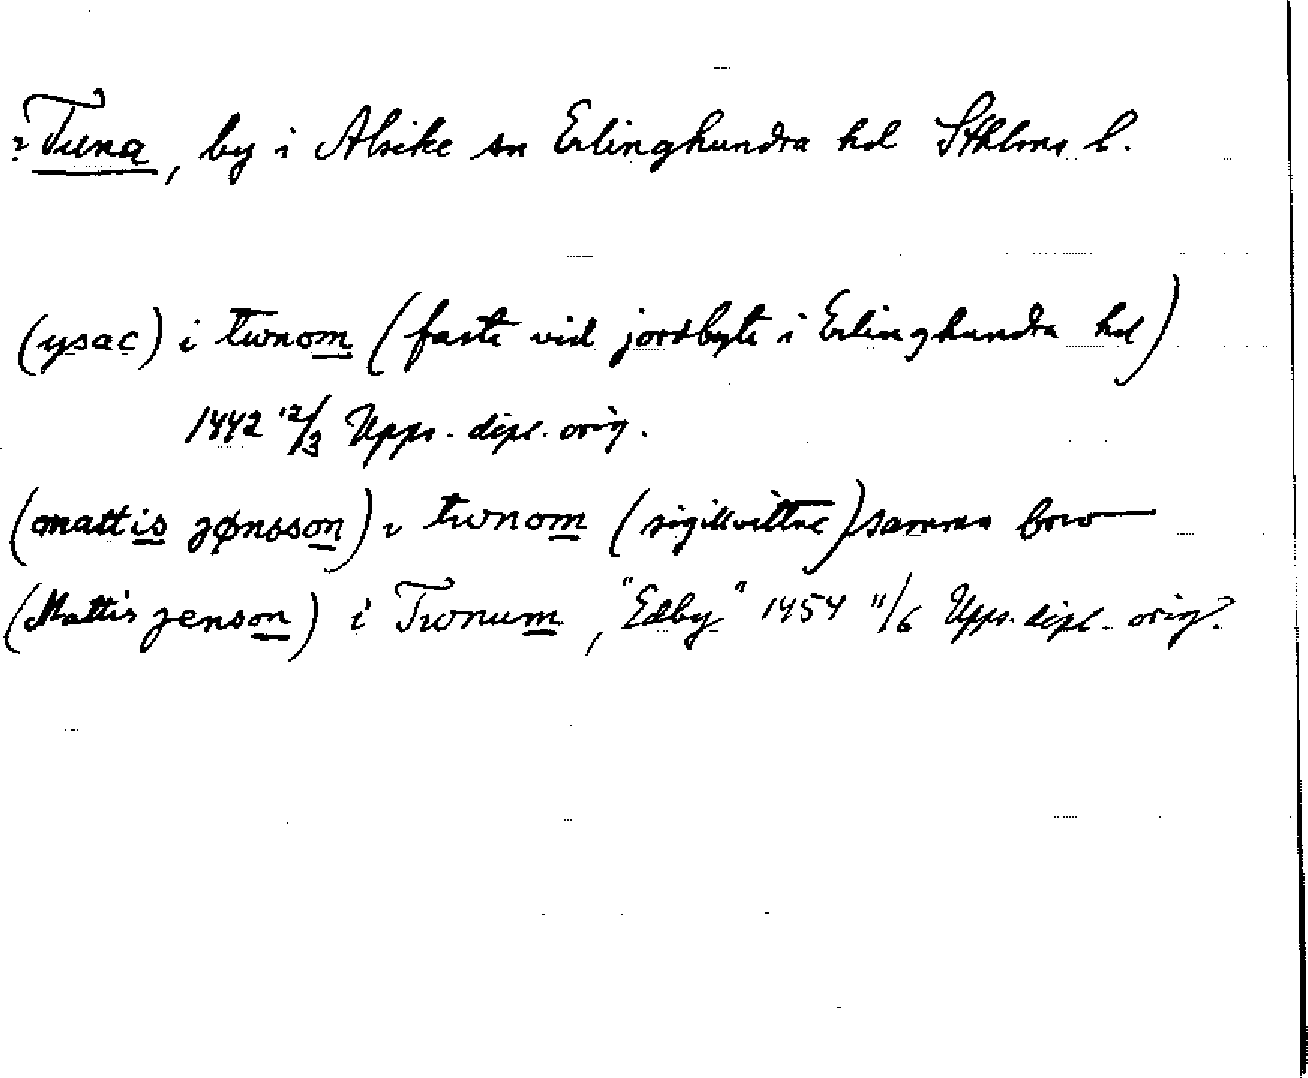 ? Tuna, by i Alsike sn Erlinghundra hd Sthlms l.
(ysac) i twnom (faste vid jordbyte i Erlinghundra hd)
1442 12/3 Upps. dipl. orig.
(mattis jønsson) i twnom (sigillvittne) samma brev
(Mattis jenson) i Twnum, "Edby" 1454 11/6 Upps. dipl. orig.